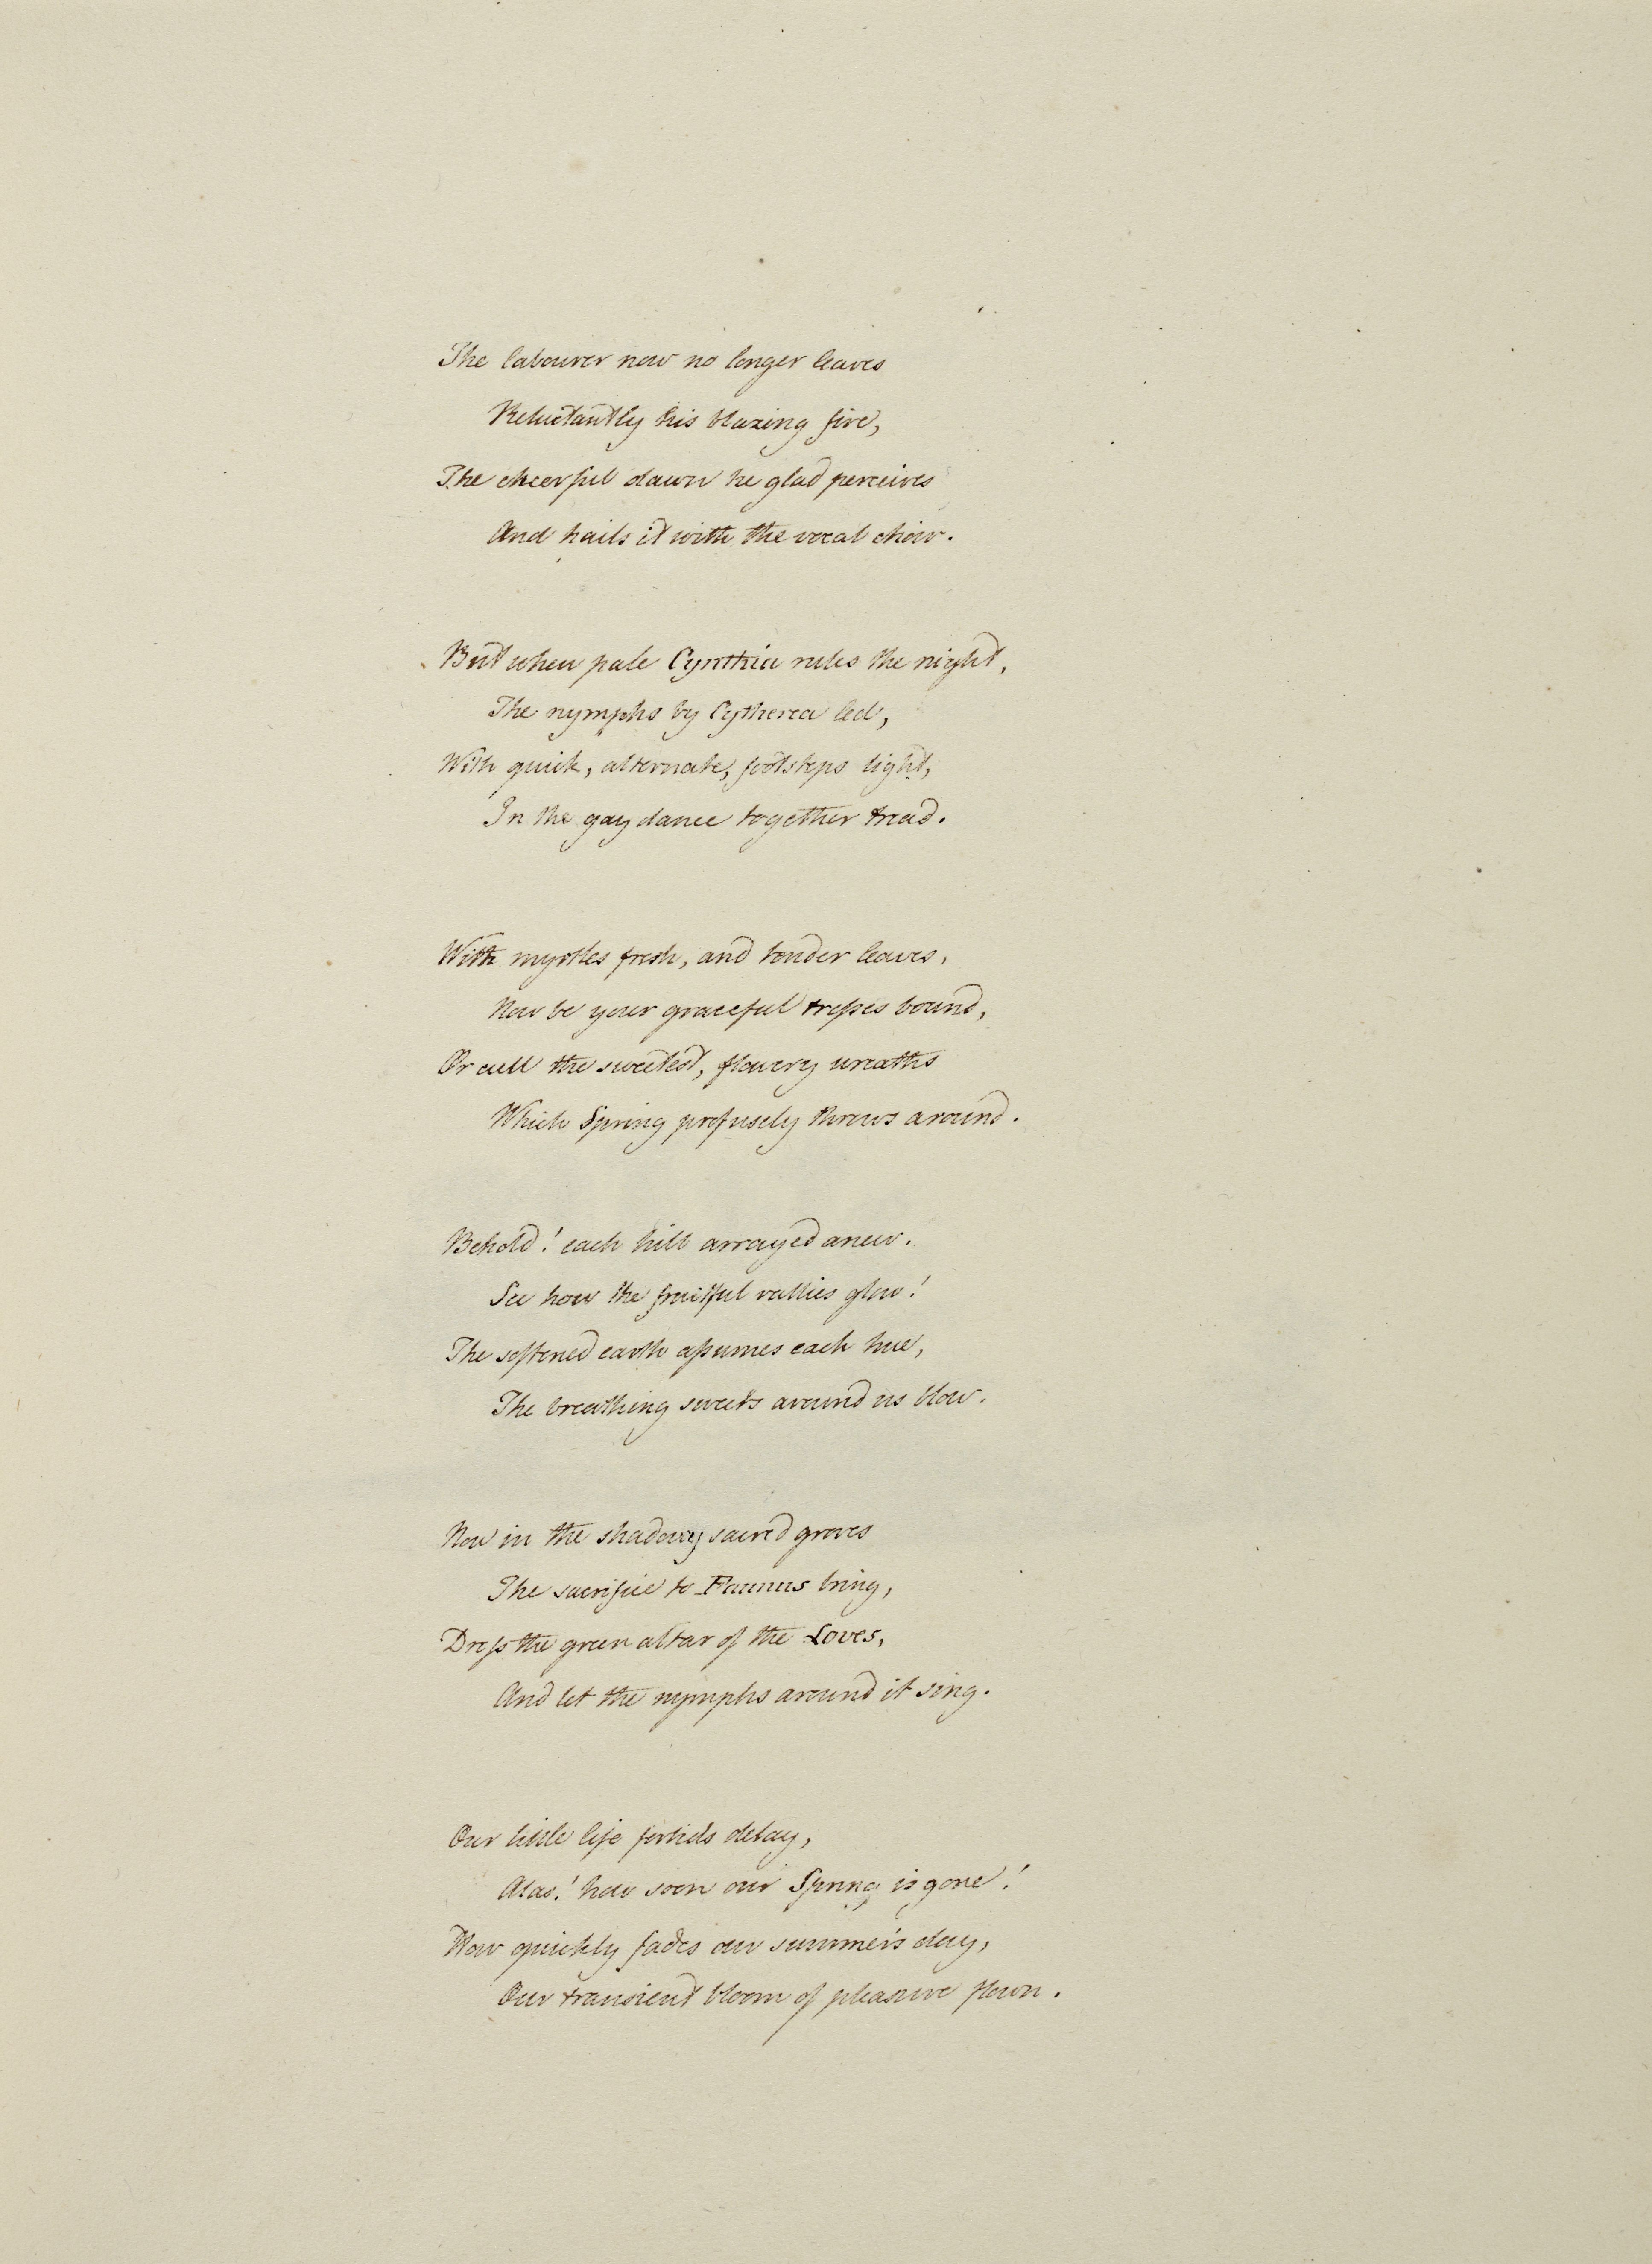 The labourer now no longer leaves
Reluctantly his blazing fire,
The cheerful dawn he glad perceives
And hails it with the vocal choir.
But when pale Cynthia rules the night,
The nymphs by Cytherea led,
With quick, alternate, footsteps light,
In the gay dance together tread.
With myrtles fresh, and tender leaves,
Now be your graceful treſses bound,
Or cull the sweetest, flowery wreaths
Which Spring profusely throws around.
Behold! each hill arrayed anew.
See how the fruitful vallies glow!
The softened earth aſsumes each hue,
The breathing sweets around us blow.
Now in the shadowy sacred groves
The sacrifice to Faunus bring,
Dreſs the green altar of the Loves,
And let the nymphs around it sing.
Our little life forbids delay,
Alas! how soon our Spring is gone!
How quickly fades our summer's day,
Our transient bloom of pleasure flown.